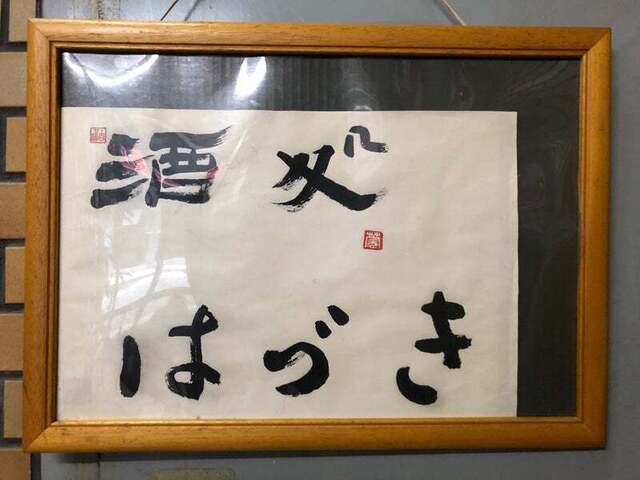 酒処
はづき